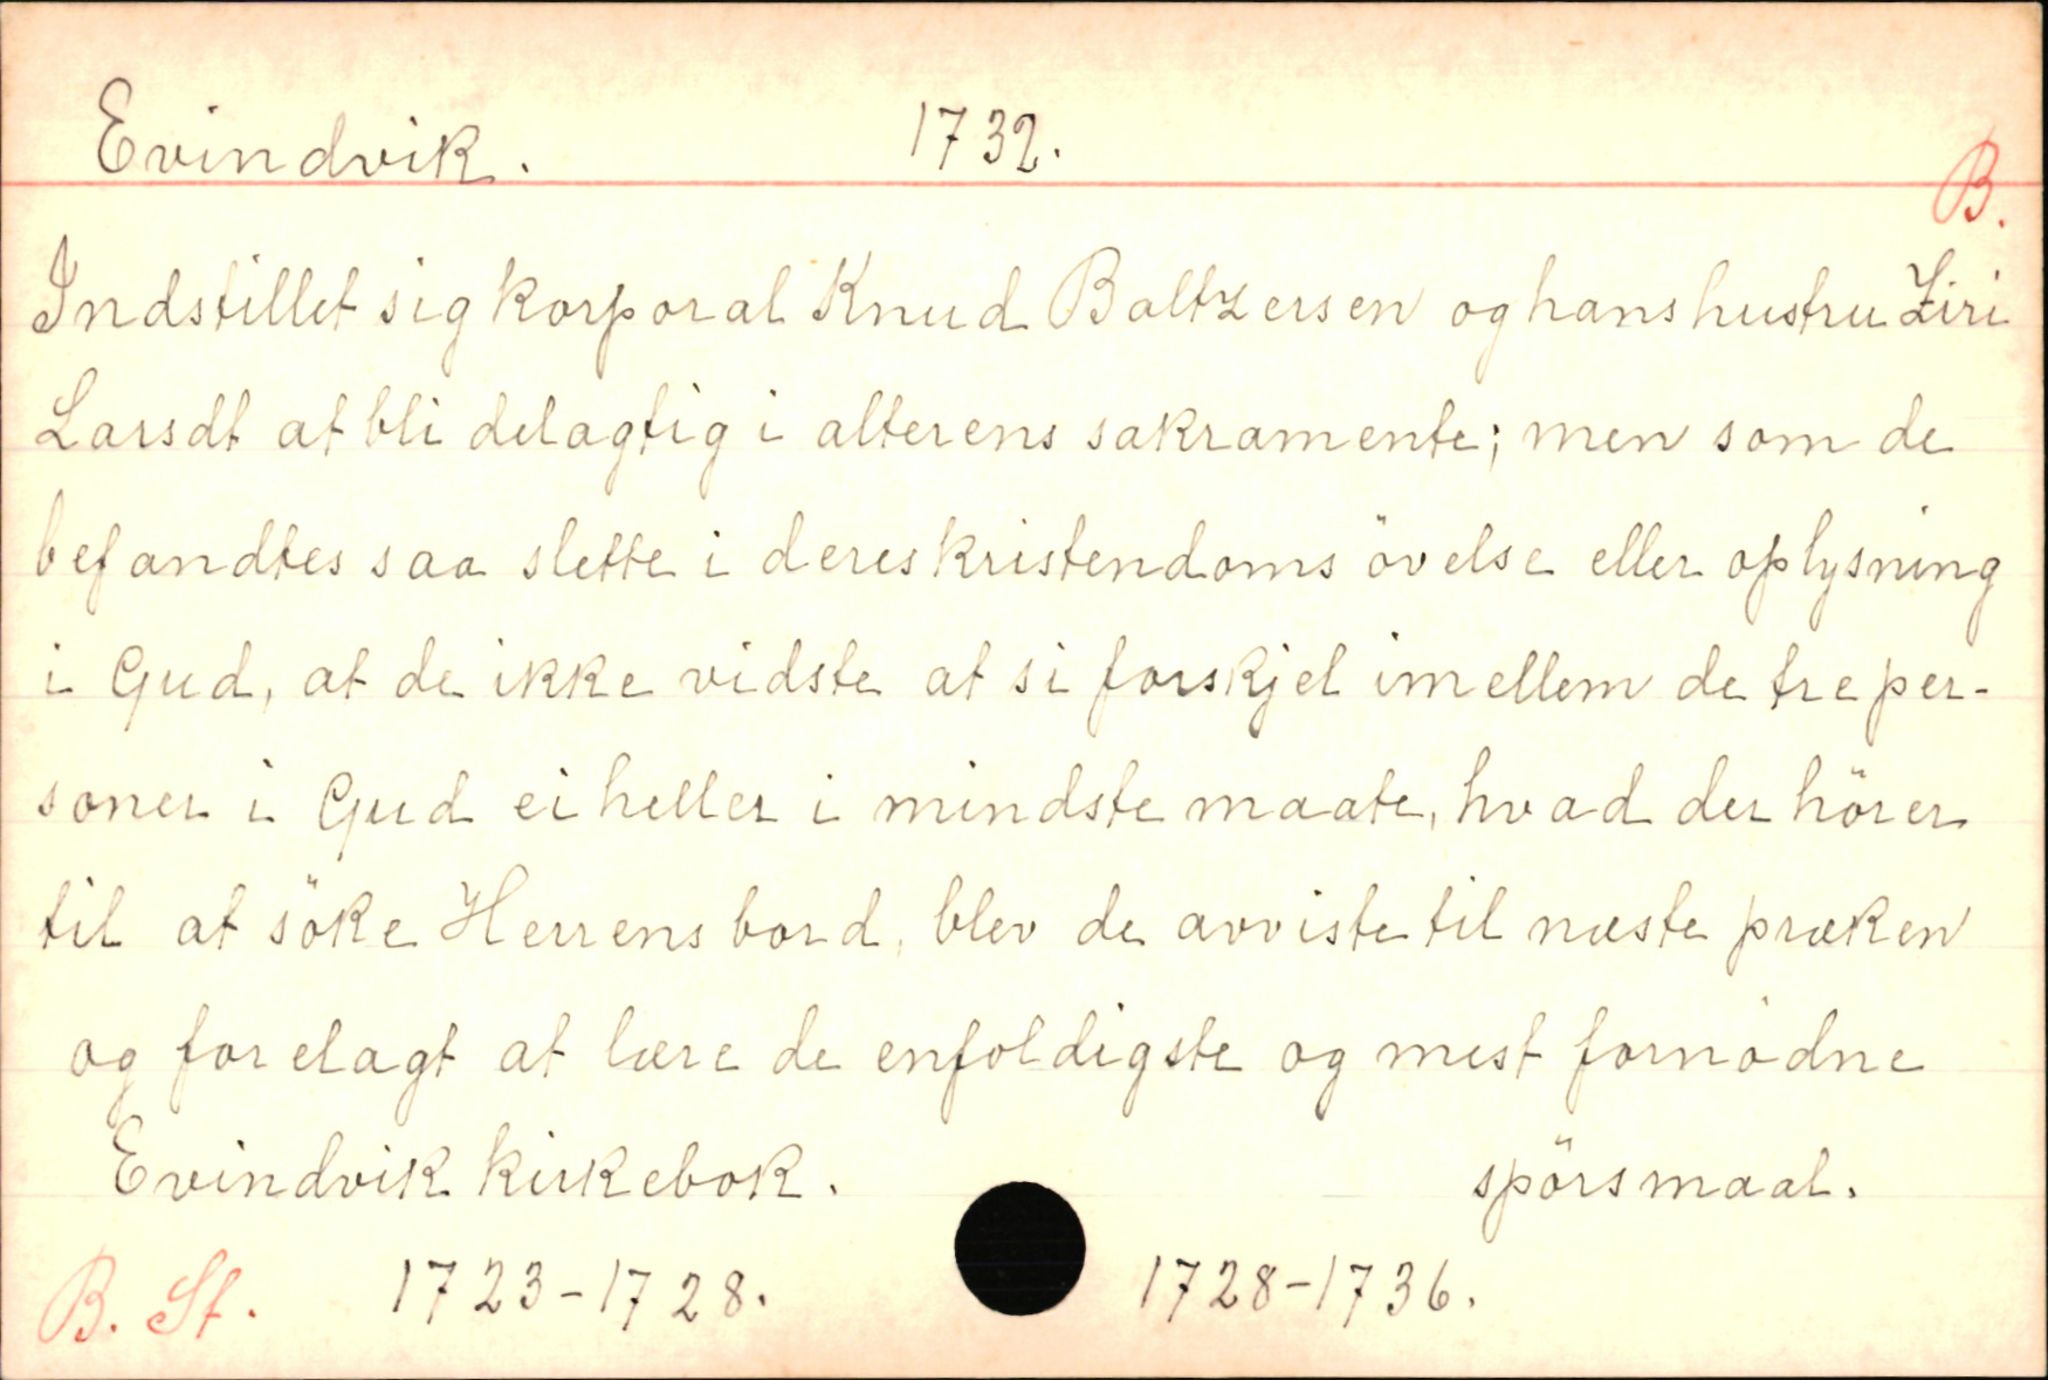 Evindvik. 1732.
B.
Indstillet sig korporal Knud Baltzersen og hans hustru Ziri
Larsdt at bli delagtig i alterens sakramente; men som de
befandtes saa slette i deres kristendoms övelse eller oplysning
i Gud, at de ikke vidste at si forskjel imellem de tre per-
soner i Gud ei heller i mindste maate, hvad der hörer
til at söke Herrens bord, blev de avviste til næste præken
og forelagt at lære de enfoldigste og mest fornödne
Evindvik kirkebok. spörsmaal.
B. St. 1723-1728. 1728-1736.